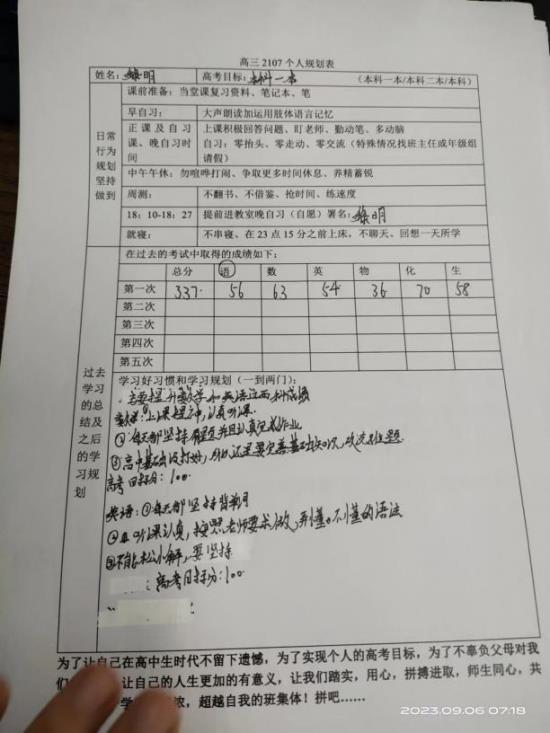 高三 2107 个人规划表
姓名：黎明 高考目标：本科一本 （本科一本/本科二本/本科）
日常行为规划坚持做到
课前准备：当堂课复习资料、笔记本、笔
早自习： 大声朗读加运用肢体语言记忆
正课及自习课、晚自习时间 上课积极回答问题、盯老师、勤动笔、多动脑
自习：零抬头、零走动、零交流（特殊情况找班主任或年级组请假）
中午午休：勿喧哗打闹、争取更多时间休息、养精蓄锐
周测： 不翻书、不借鉴、抢时间、练速度
18：10-18：27 提前进教室晚自习（自愿）署名：黎明
就寝： 不串寝、在 23 点 15 分之前上床，不聊天、回想一天所学
过去学习的总结及之后的学习规划
在过去的考试中取得的成绩如下：
总分 语 数 英 物 化 生
第一次 337 56 63 54 36 70 58
第二次
第三次
第四次
第五次
学习好习惯和学习规划（一到两门）：
主要提升数学和英语这两科成绩
数学：①上课集中，认真听课
②每天都坚持 并且认真完成作业
③高中基础没打好，所以还是要完善基础知识，攻克难题
高考目标：100
英语：①每天都坚持背单词
②听课认真，按照老师要求做，弄懂不懂的语法
③不能松懈，要坚持
高考目标分：100
为了让自己在高中生时代不留下遗憾，为了实现个人的高考目标，为了不辜负父母对我
们 让自己的人生更加的有意义，让我们踏实，用心，拼搏进取，师生同心，共
学 浓，超越自我的班集体！拼吧……
2023.09.06 07:18